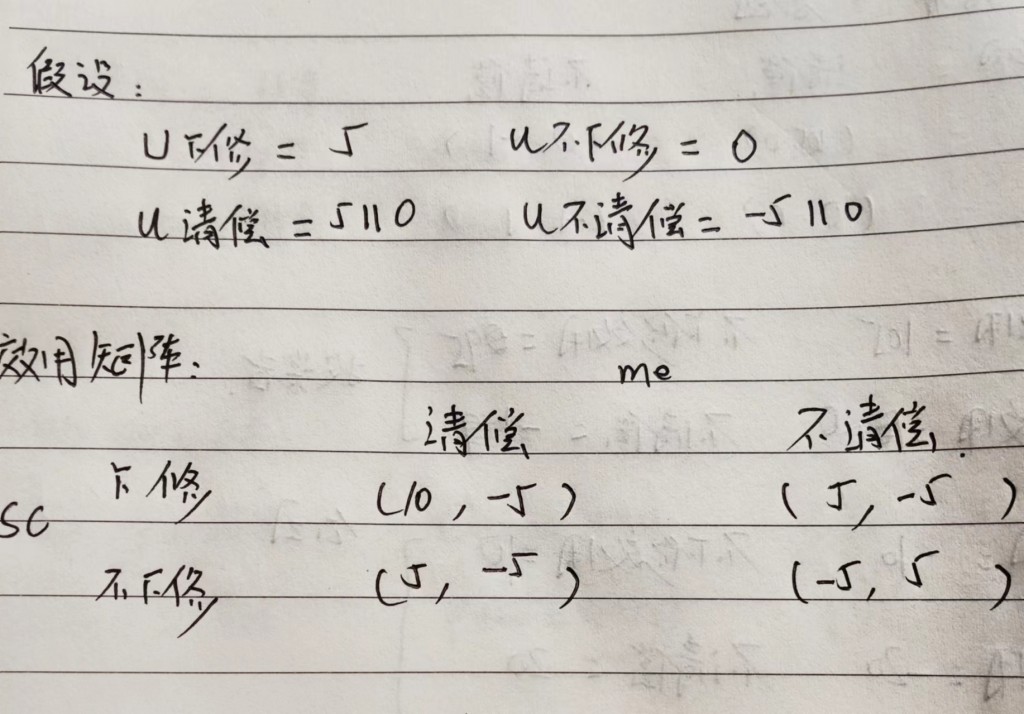 假设：
U下修 = 5 U不下修 = 0
U清偿 = 5 || 0 U不清偿 = -5 || 0
效用矩阵：
me
清偿 不清偿
下修 (10, -5) (5, -5)
SC
不下修 (5, -5) (-5, 5)